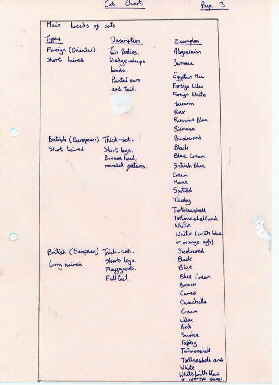 Cat Chart Page 3
Main breeds of cats
Types Description Examples
Foreign (Oriental) Abyssinian
Short haired Wedge-shaped Burmese
heads.
Pointed ears Egyptian Mau
and tail. Foreign Lilac
Foreign White
Havana
Rex
Russian Blue
Siamese
British (European) Thick-set.
Short haired Short legs. Black
Broad head, Blue Cream
rounded pattern. British Blue
Cream
Manx
Spotted
Tabby
Tortoiseshell
Tortoiseshell and
White
White (with blue
or orange eyes)
British (European) Thick-set.
Long haired Short legs. Black
Blue
Full tail. Blue Cream
Brown
Cameo
Chinchilla
Cream
Lilac
Red
Smoke
Tabby
Tortoiseshell
Tortoiseshell and
White
White (with blue
or orange eyes)